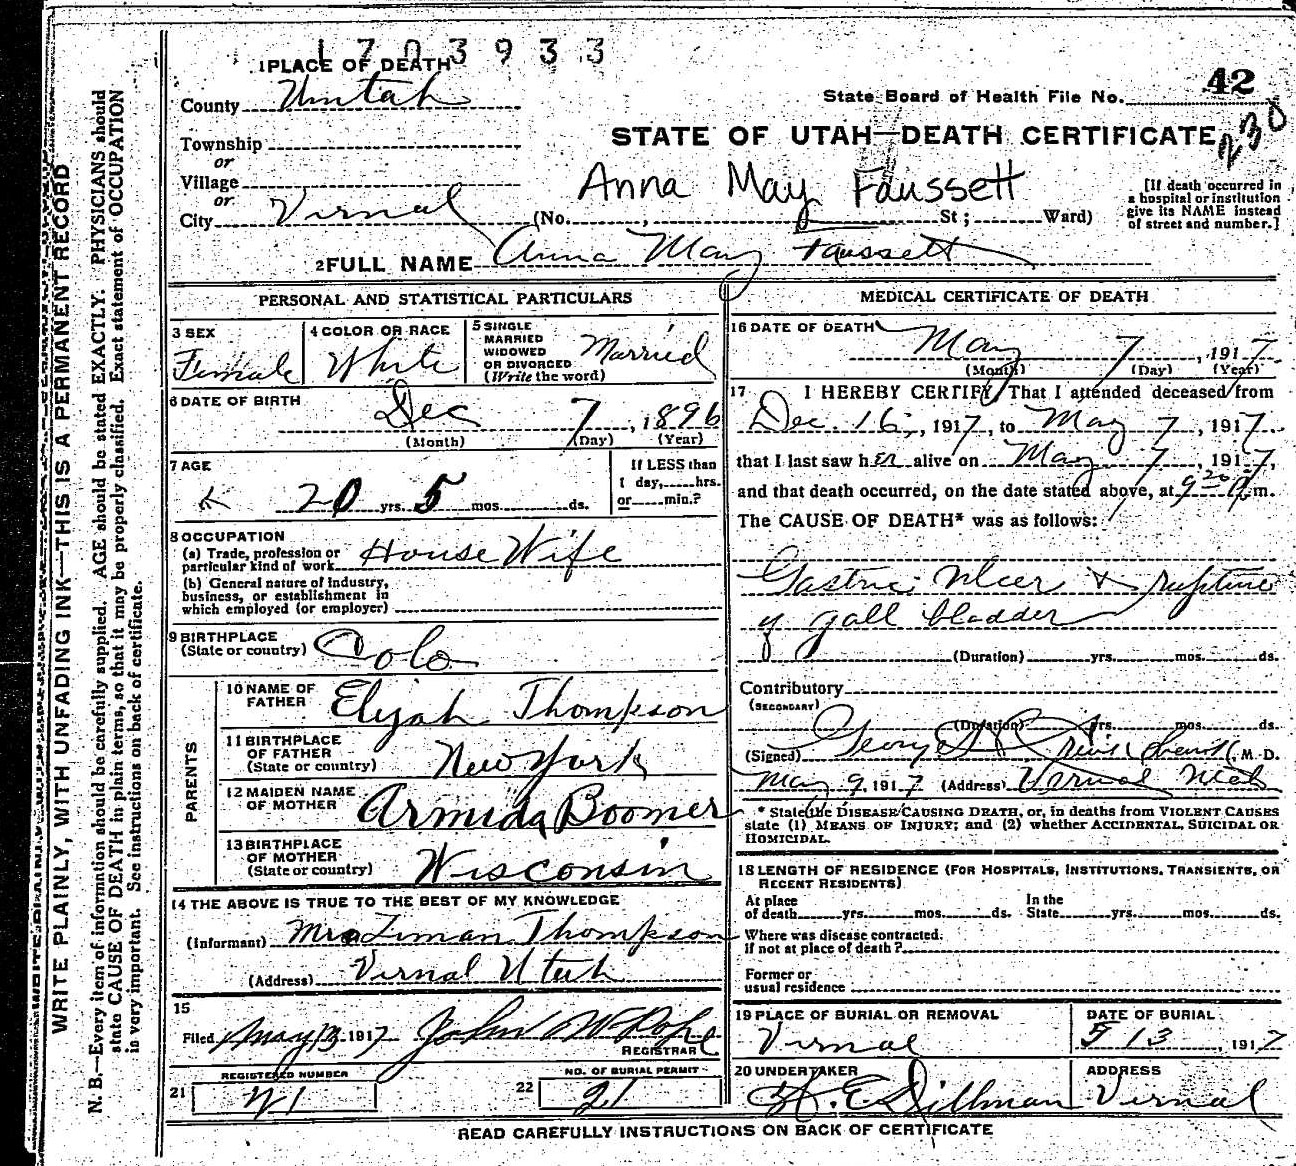 1703933
1 PLACE OF DEATH
County Uintah
State Board of Health File No. 42
Township
or
STATE OF UTAH—DEATH CERTIFICATE 230
Village
or
Anna May Faussett
[If death occurred in
a hospital or institution
give its NAME instead
of street and number.]
City Vernal (No. , St ; Ward)
2 FULL NAME Anna May Faussett
PERSONAL AND STATISTICAL PARTICULARS
3 SEX
Female
4 COLOR OR RACE
White
5 SINGLE
MARRIED
WIDOWED
OR DIVORCED
(Write the word)
Married
6 DATE OF BIRTH
Dec 7, 1896
(Month) (Day) (Year)
7 AGE
20 yrs. 5 mos. ds.
If LESS than
1 day, hrs.
or min.?
8 OCCUPATION
(a) Trade, profession or
particular kind of work House Wife
(b) General nature of industry,
business, or establishment in
which employed (or employer)
9 BIRTHPLACE
(State or country) Colo
PARENTS
10 NAME OF
FATHER Elijah Thompson
11 BIRTHPLACE
OF FATHER
(State or country) New York
12 MAIDEN NAME
OF MOTHER Armida Boomer
13 BIRTHPLACE
OF MOTHER
(State or country) Wisconsin
14 THE ABOVE IS TRUE TO THE BEST OF MY KNOWLEDGE
(Informant) Thompson
(Address) Vernal Utah
15
Filed May 13 1917 John W Pope
REGISTRAR
REGISTERED NUMBER
21 21
NO. OF BURIAL PERMIT
22 21
MEDICAL CERTIFICATE OF DEATH
16 DATE OF DEATH
May 7, 1917.
(Month) (Day) (Year)
17 I HEREBY CERTIFY, That I attended deceased from
Dec. 16, 1917, to May 7, 1917.
that I last saw her alive on May 7, 1917,
and that death occurred, on the date stated above, at 9 20 P.m.
The CAUSE OF DEATH* was as follows:
Gastric Ulcer & rupture
of gall bladder
(Duration) yrs. mos. ds.
Contributory
(SECONDARY)
(Duration) yrs. mos. ds.
(Signed) George , M. D.
May 9, 1917 (Address) Vernal Utah
* State the DISEASE CAUSING DEATH, or, in deaths from VIOLENT CAUSES
state (1) MEANS OF INJURY; and (2) whether ACCIDENTAL, SUICIDAL OR
HOMICIDAL.
18 LENGTH OF RESIDENCE (FOR HOSPITALS, INSTITUTIONS, TRANSIENTS, OR
RECENT RESIDENTS)
At place
of death yrs. mos. ds.
In the
State yrs. mos. ds.
Where was disease contracted,
if not at place of death?
Former or
usual residence
19 PLACE OF BURIAL OR REMOVAL
Vernal
DATE OF BURIAL
5 13, 1917
20 UNDERTAKER
Dillman
ADDRESS
Vernal
READ CAREFULLY INSTRUCTIONS ON BACK OF CERTIFICATE
WRITE PLAINLY, WITH UNFADING INK—THIS IS A PERMANENT RECORD
N. B.—Every item of information should be carefully supplied. AGE should be stated EXACTLY. PHYSICIANS should
state CAUSE OF DEATH in plain terms, so that it may be properly classified. Exact statement of OCCUPATION
is very important. See instructions on back of certificate.